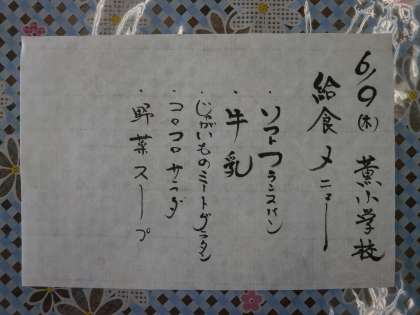 6/9(木) 薫小学校
給食メニュー
・ソフトフランスパン
・牛乳
・じゃがいものミートグラタン
・コロコロサラダ
・野菜スープ